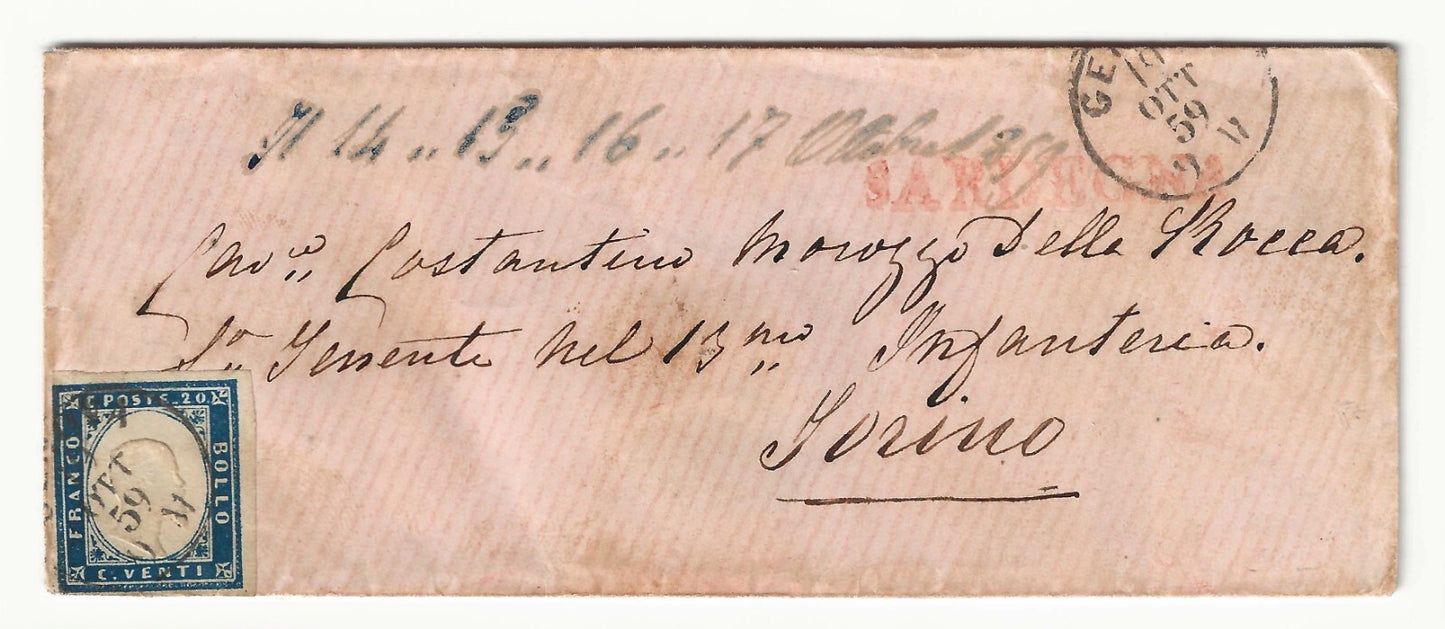 Il 14 „ 13 „ 16 „ 17 Ottobre 1859
SARDEGNA
GE
19
OTT
59
9 M
Cav.re Costantino Morozzo Della Rocca.
1.o Tenente nel 13.mo Infanteria.
Torino
C. POSTE. 20
FRANCO
BOLLO
C. VENTI
OTT
59
M